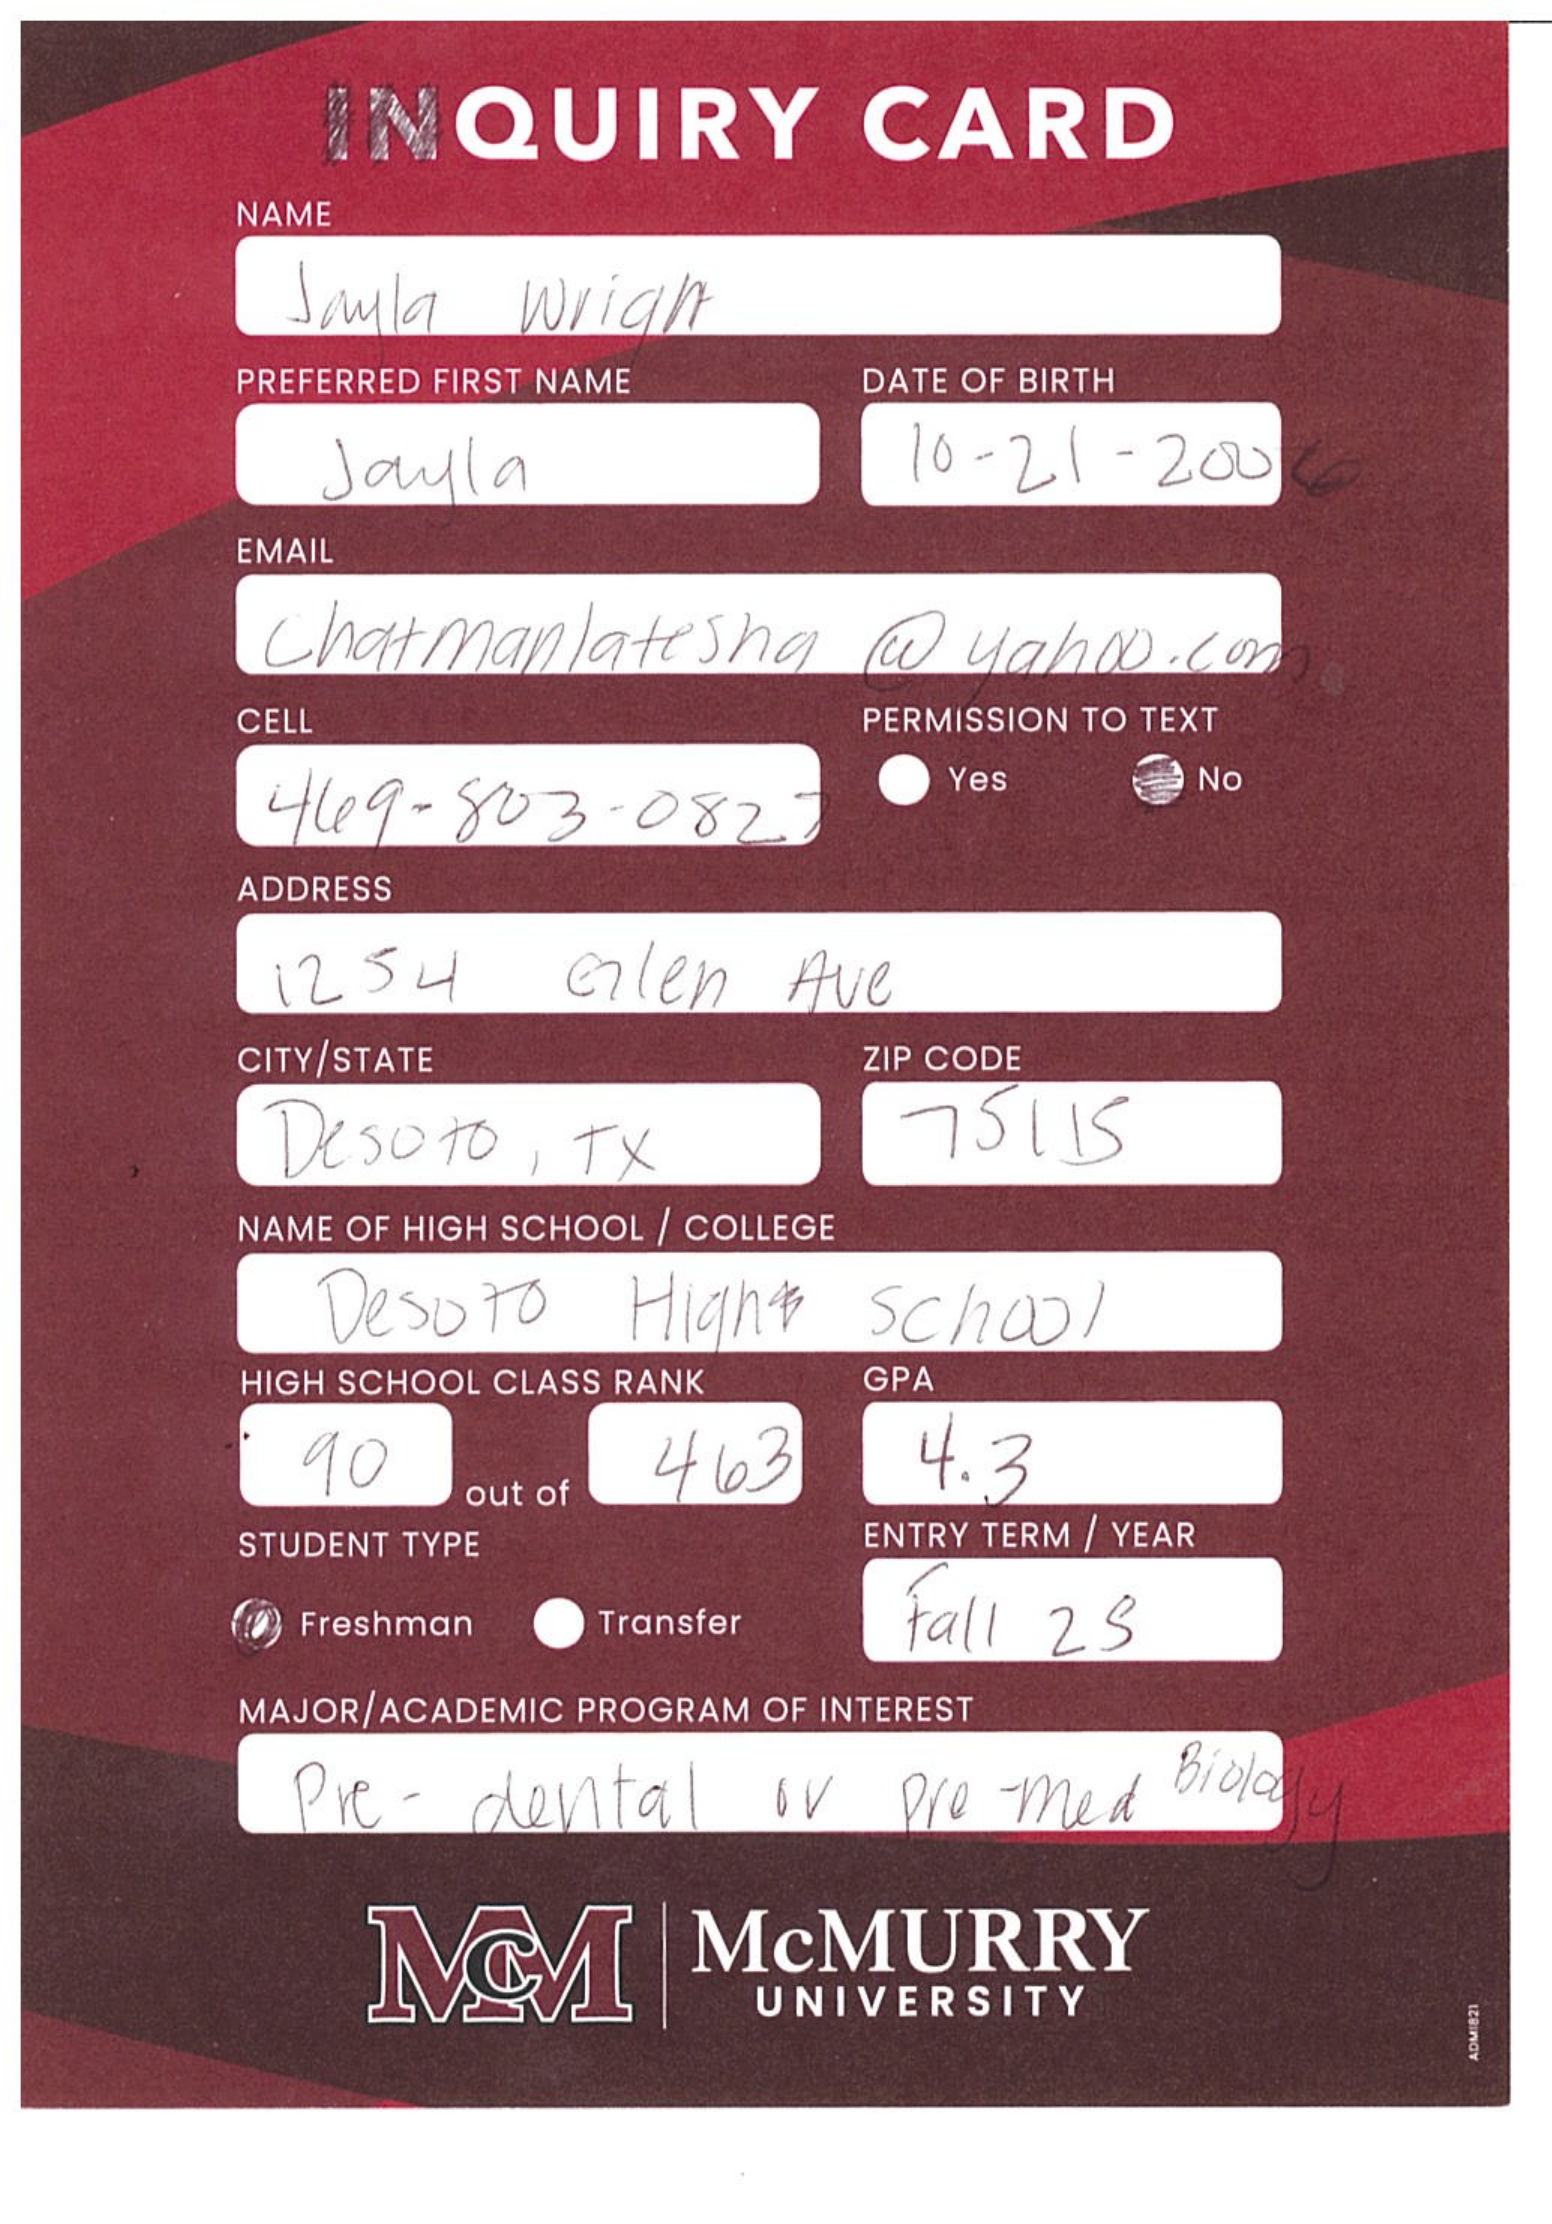 INQUIRY CARD
NAME
Jayla Wright
PREFERRED FIRST NAME DATE OF BIRTH
Jayla 10-21-2006
EMAIL
Chatmanlatesha@yahoo.com
CELL PERMISSION TO TEXT
469-803-0827 Yes No
ADDRESS
1254 Glen Ave
CITY/STATE ZIP CODE
Desoto, TX 75115
NAME OF HIGH SCHOOL / COLLEGE
Desoto High School
HIGH SCHOOL CLASS RANK GPA
90 out of 463 4.3
STUDENT TYPE ENTRY TERM / YEAR
Freshman Transfer Fall 25
MAJOR/ACADEMIC PROGRAM OF INTEREST
Pre-dental or pre-med Biology
MCM McMURRY
UNIVERSITY
ADM1821